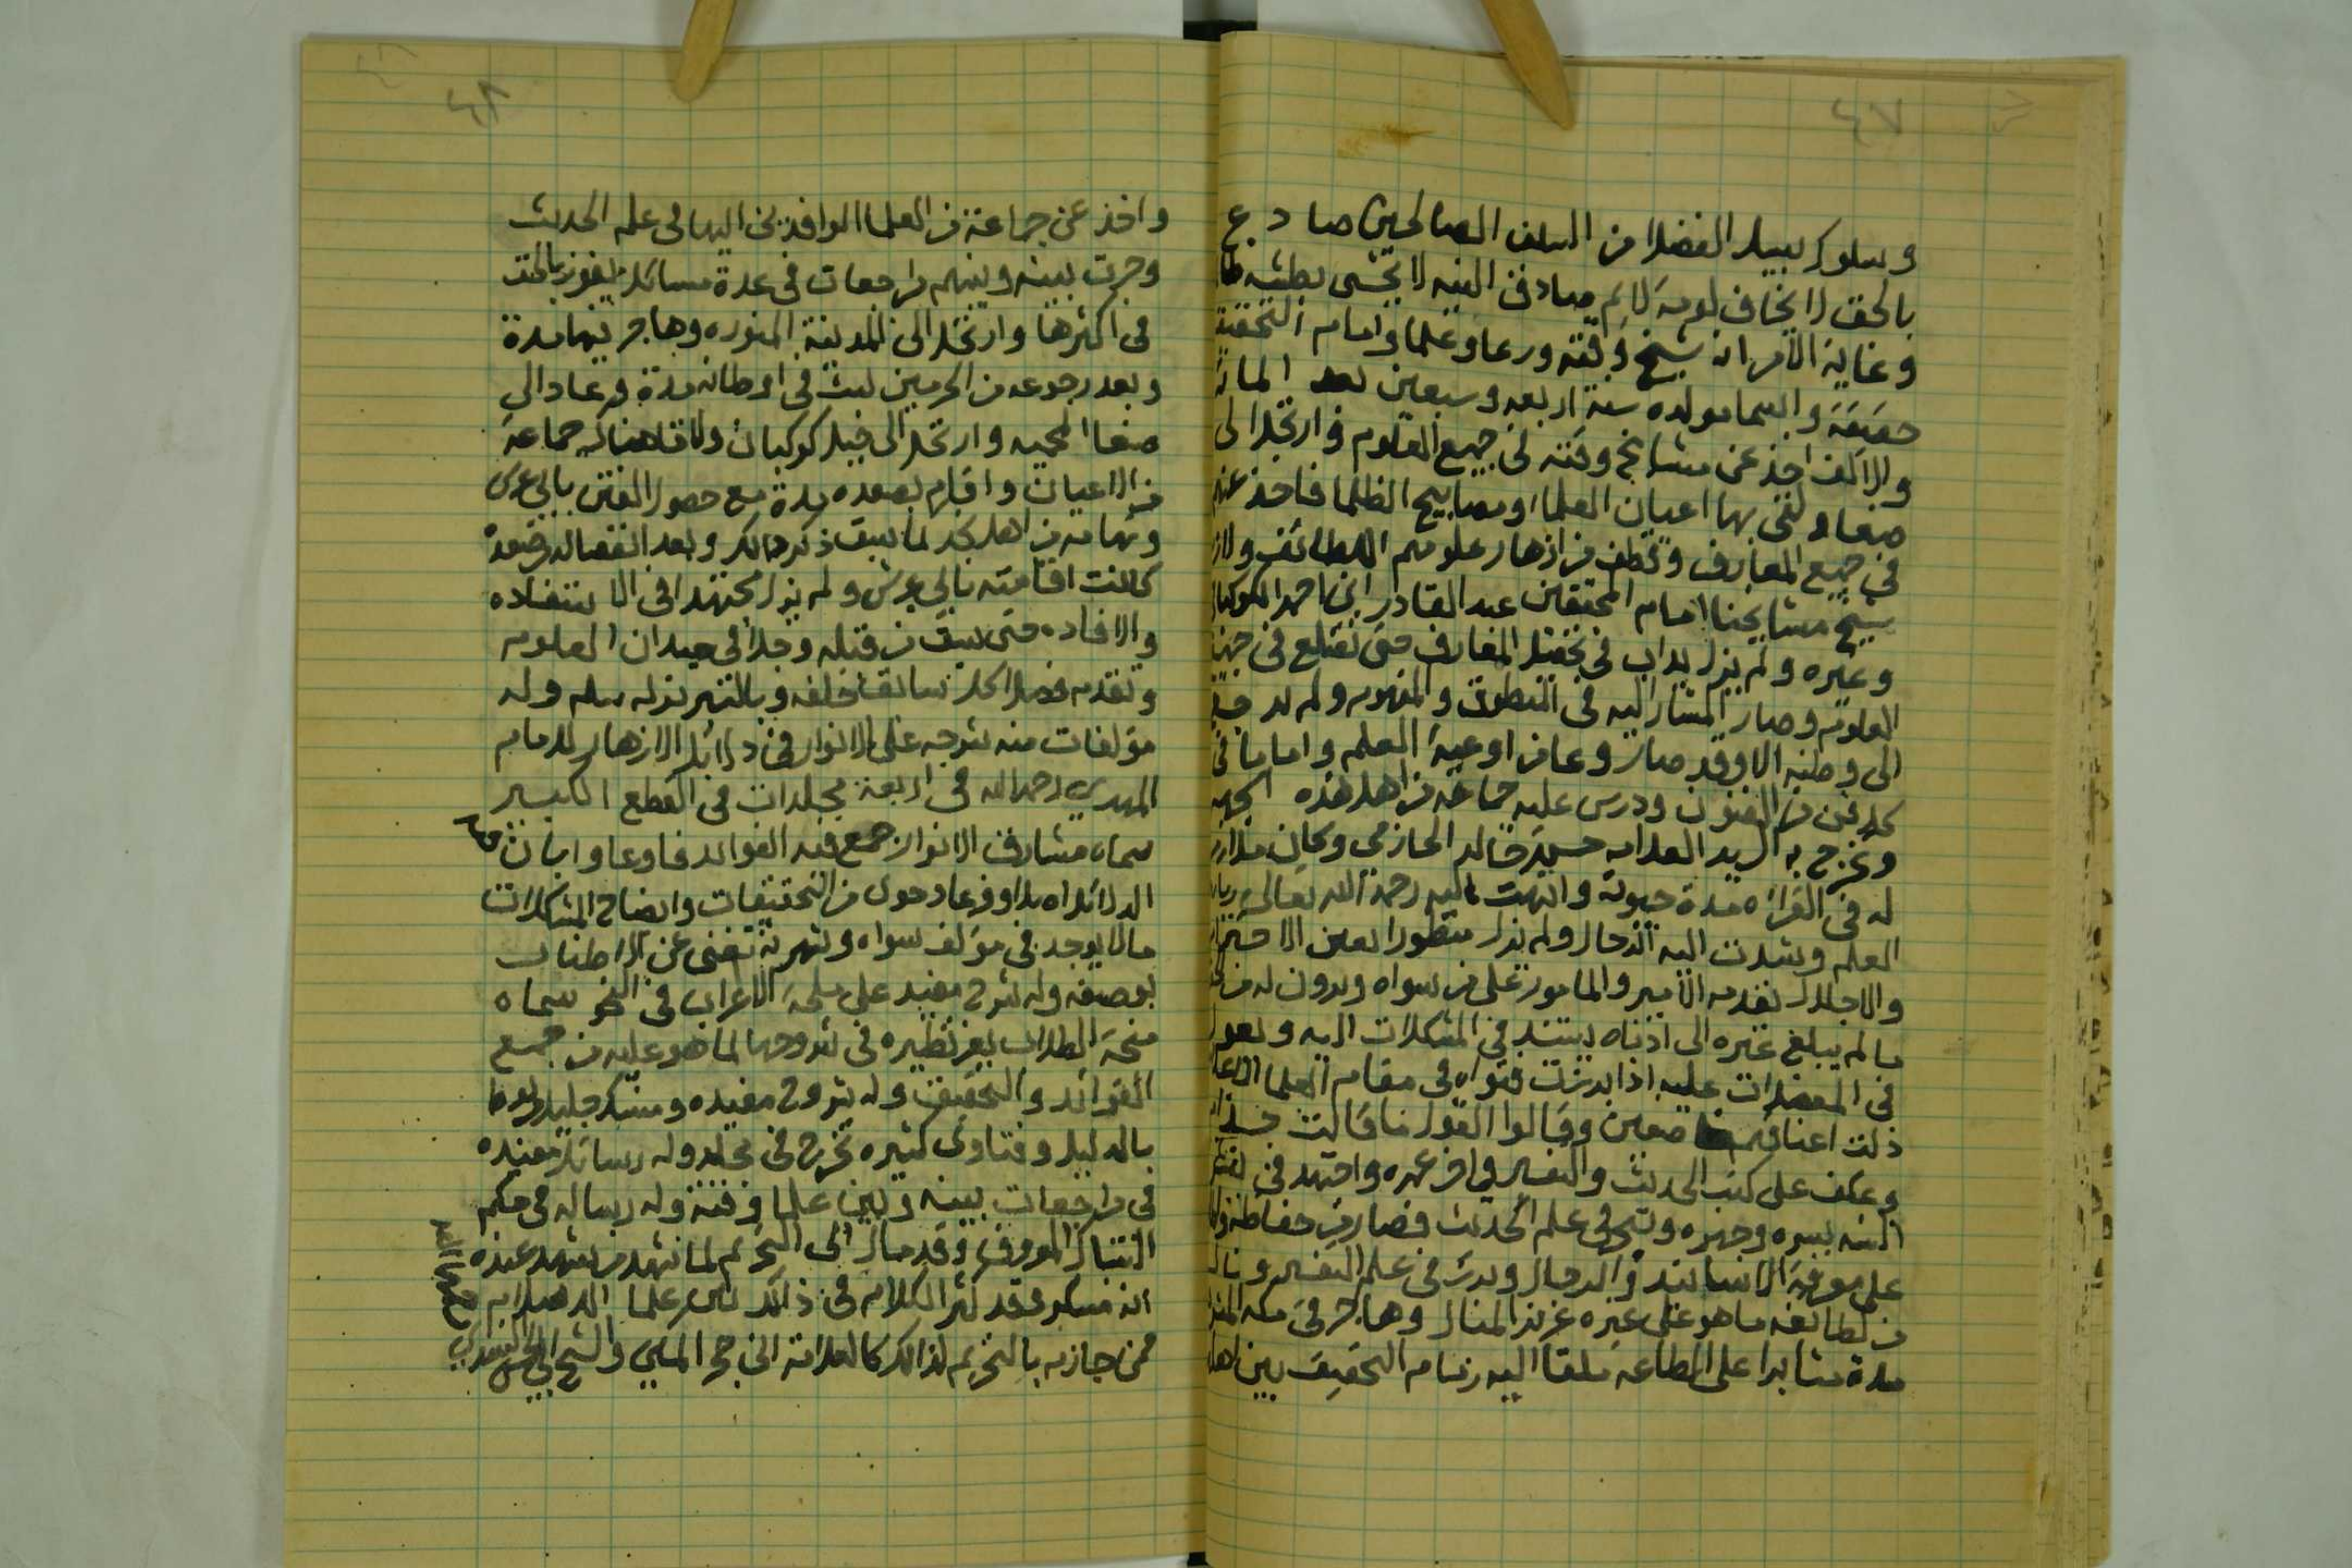 ٤٧
وسلوك سبيل الفضلا من السلف الصالحين صادع
بالحق لا يخاف لومة لائم صادق النيه لا يخشى بطشة ظا
وغاية الامر انه شيخ وقته ورعا وعلما وامام التحقيق
حقيقة واسما مولده سنة اربعه وسبعين بعد المائة
والالف اخذ عن مشايخ وقته في جميع العلوم وارتحل الى
صنعا ولقى بها اعيان العلما ومصابيح الظلما فاخذ عنهم
في جميع المعارف وقطف من ازهار علومهم اللطائف ولازم
شيخ مشايخنا امام المحققين عبد القادر ابن احمد الكوكبان
وغيره ولم يزل يداب في تحصيل المعارف حتى تضلع في جميع
العلوم وصار المشار اليه في المنطوق والمفهوم ولم يعد
الى وطنه الا وقد صار وعا من اوعية العلم واماما في
كل فن من الفنون ودرس عليه جماعة من اهل هذه الجهه
وتخرج به السيد العلامه حسن خالد الحازمي وكان ملازم
له في القراءه مدة حيوته وانتهت اليه رحمه الله تعالى رياسة
العلم وشدت اليه الرحال ولم يزل منظورا بعين الاحترام
والاجلال يقدمه الامير والمامور على من سواه ويرون له من
ما لم يبلغ غيره الى ادناه يستند في المشكلات اليه ويعول
في المعضلات عليه اذا برزت فتواه في مقام العلما الاعلام
ذلت اعناقهم خاضعين وقالوا القول ما قالت حذام
وعكف على كتب الحديث والتفسير في اخر عمره واجتهد في
السنه بسره وجهره وتبحر في علم الحديث فصار من حفاظه
على معرفة الاسانيد والرجال وبرز في علم التفسير ونال
من لطائفه ما هو على غيره عزيز المنال وهاجر في مكه المشرفه
مدة مثابرا على الطاعه ملقا اليه زمام التحقيق بين اهل
٤٨
واخذ عن جماعة من العلما الوافدين اليها في علم الحديث
وجرت بينه وبينهم مراجعات في عدة مسائل يفوز بالحق
في اكثرها وارتحل الى المدينة المنوره وهاجر فيها مدة
وبعد رجوعه من الحرمين لبث في اوطانه مدة وعاد الى
صنعا المحميه وارتحل الى جبل كوكبان ولاقا هنالك جماعة
من الاعيان واقام بصعده مدة مع حصول الفتن بابي عريش
وتهامه من اهل نجد لما سبق ذكر ذالك وبعد انفصاله من صعده
كانت اقامته بابي عريش ولم يزل مجتهدا في الاستفاده
والافاده حتى سبق من قبله وجلا في ميدان العلوم
وتقدم فضلا كل سابقا خلفه وبالتبريز له سلم وله
مؤلفات منه شرحه على الانوار في دلائل الازهار للامام
المهدي رحمه الله في اربعة مجلدات في القطع الكبير
سماه مشارق الانوار جمع فيه الفوائد فاوعا وابان فيه
الدلائل اصلا وفرعا وحوى من التحقيقات وايضاح المشكلات
مالا يوجد في مؤلف سواه وشهرته تغنى عن الاطناب
بوصفه وله شرح مفيد على ملحة الاعراب في النحو سماه
منحة الطلاب يعز نظيره في شروحها لما هو عليه من جميع
الفوائد والتحقيق وله شروح مفيده ومنسك جليل
بالدليل وفتاوى كثيره تخرج في مجلد وله رسائل مفيده
في مراجعات بينه وبين علما وقته وله رساله في حكم
التنباك المعروف وقد مال الى التحريم لما شهد من شهد عنده
انه مسكر وقد كثر الكلام في ذالك من علما الاسلام
ممن جازم بالتحريم لذالك كالعلامة ابن حجر المكي والشيخ ابي الحسن السندي